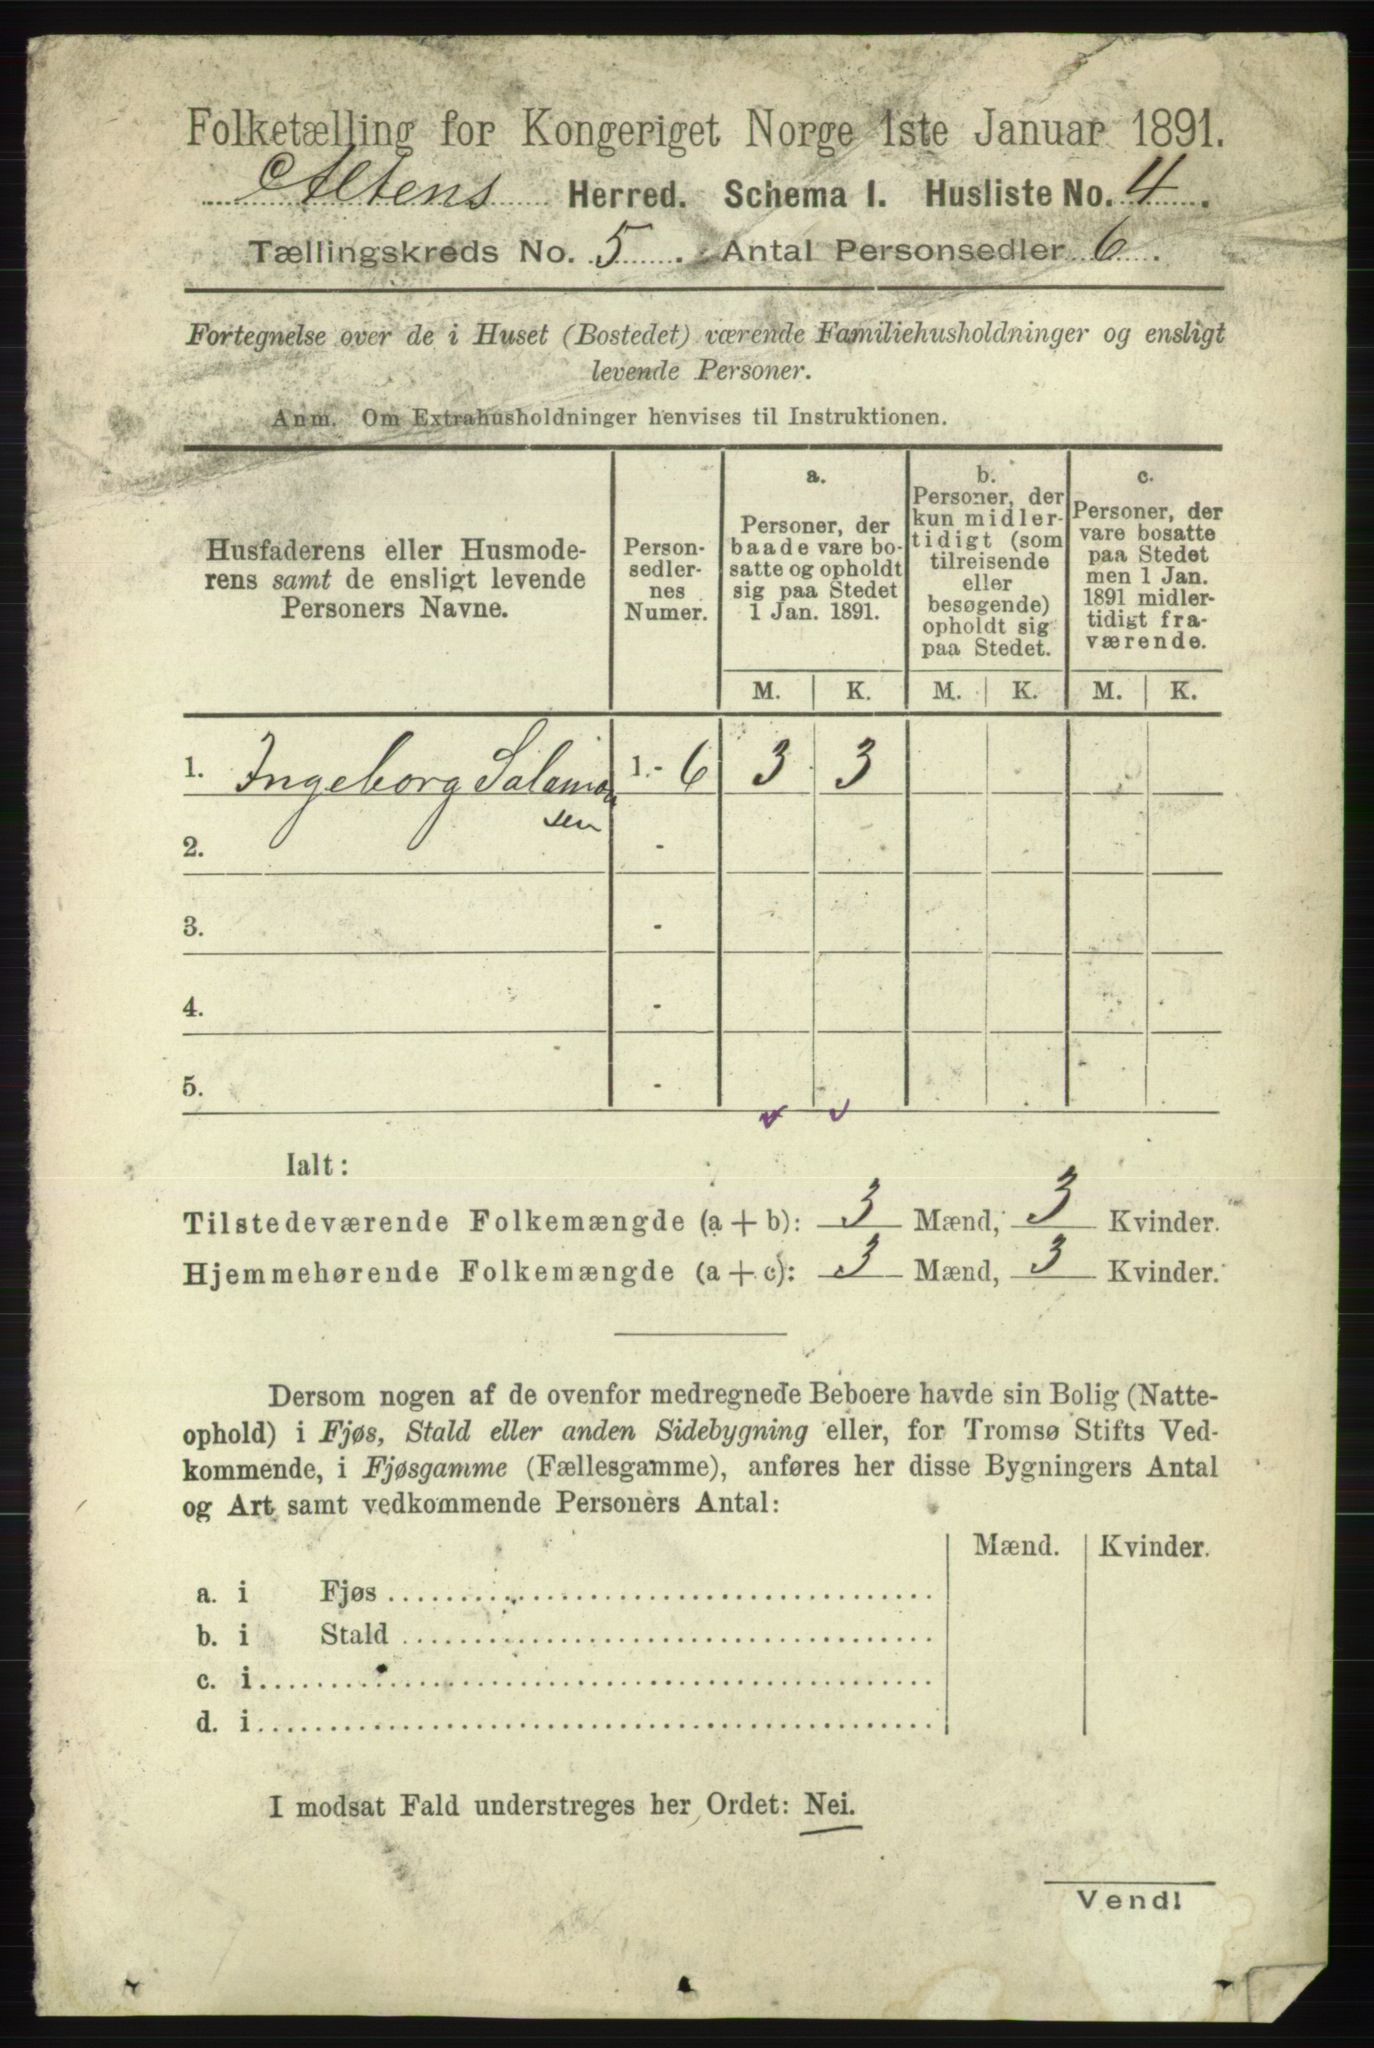 Folketælling for Kongeriget Norge 1ste Januar 1891.
Altens Herred. Schema I. Husliste No. 4.
Tællingskreds No. 5. Antal Personsedler 6.
Fortegnelse over de i Huset (Bostedet) værende Familiehusholdninger og ensligt
levende Personer.
Anm. Om Extrahusholdninger henvises til Instruktionen.
Husfaderens eller Husmode-
rens samt de ensligt levende
Personers Navne.
Person-
sedler-
nes
Numer.
a.
Personer, der
baade vare bo-
satte og opholdt
sig paa Stedet
1 Jan. 1891.
b.
Personer, der
kun midler-
tidigt (som
tilreisende
eller
besøgende)
opholdt sig
paa Stedet.
c.
Personer, der
vare bosatte
paa Stedet
men 1 Jan.
1891 midler-
tidigt fra-
værende.
M. K. M. K. M. K.
1. Ingeborg Salamon 1.-6 3 3
sen
2. -
3. -
4. -
5. -
Ialt:
Tilstedeværende Folkemængde (a + b): 3 Mænd, 3 Kvinder.
Hjemmehørende Folkemængde (a + c): 3 Mænd, 3 Kvinder.
Dersom nogen af de ovenfor medregnede Beboere havde sin Bolig (Natte-
ophold) i Fjøs, Stald eller anden Sidebygning eller, for Tromsø Stifts Ved-
kommende, i Fjøsgamme (Fællesgamme), anføres her disse Bygningers Antal
og Art samt vedkommende Personers Antal:
Mænd. Kvinder.
a. i Fjøs
b. i Stald
c. i
d. i
I modsat Fald understreges her Ordet: Nei.
Vend!